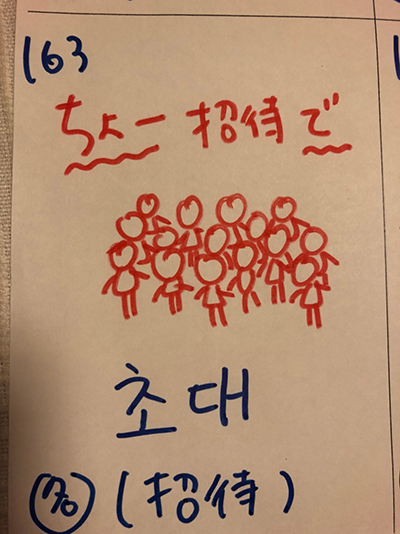 163
ちょー招待で
초대
名 (招待)